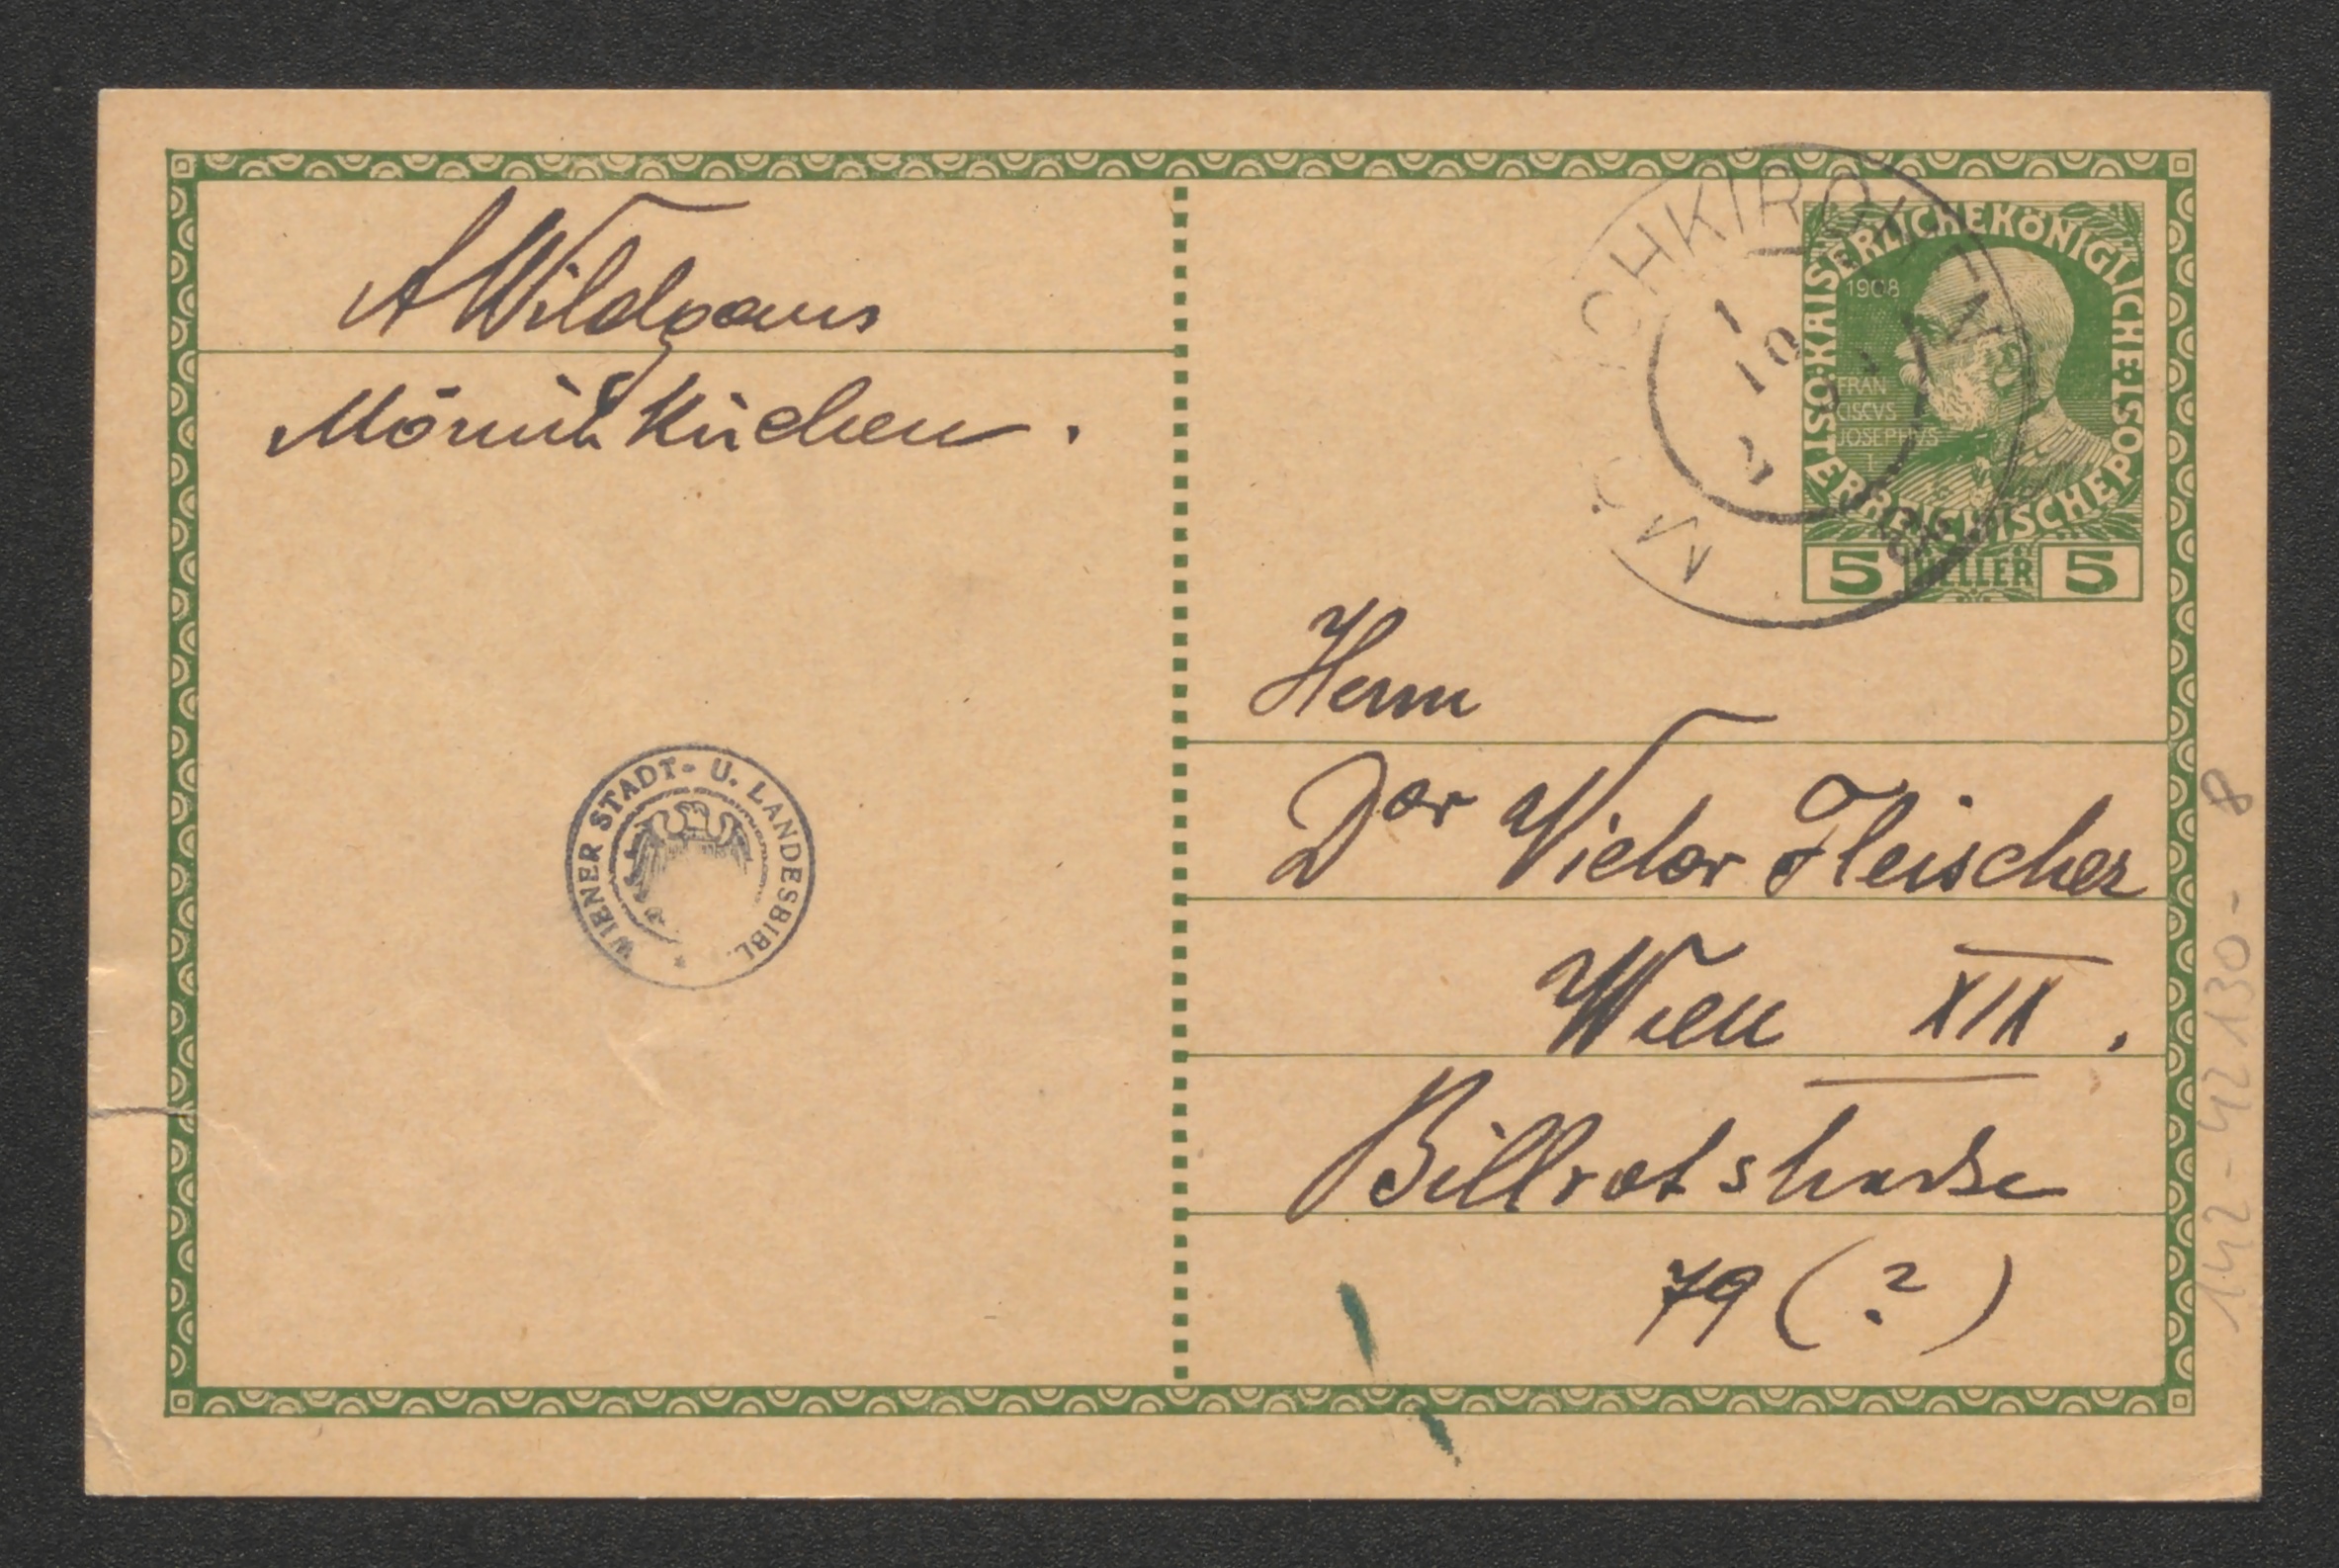 A Wildgans
Mönichkirchen.
WIENER STADT- U. LANDESBIBL.
KAISERLICHE KÖNIGLICHE
ÖSTERREICHISCHE POST
1908
FRAN
CISCVS
JOSEPHVS
I
5 HELLER 5
Herrn
Dor Victor Fleischer
Wien XIX.
Billrotstrasse
79 (?)
142-42130-8